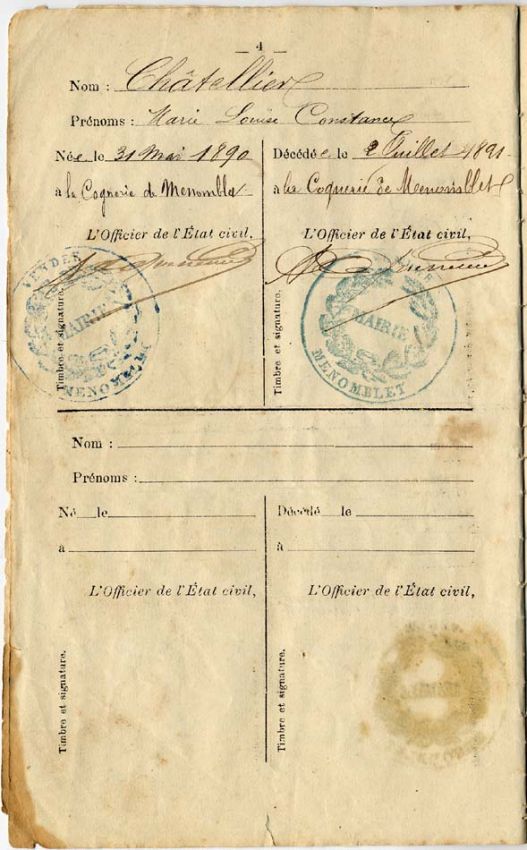 — 4 —
Nom : Châtellier
Prénoms : Marie Louise Constance
Née le 31 Mai 1890
à la Cognerie de Menombla
Décédée le 2 Juillet 1891
à la Cognerie de Menomblet
L'Officier de l'État civil,
L'Officier de l'État civil,
Timbre et signature.
VENDÉE
MAIRIE
MENOMBLET
Timbre et signature.
MAIRIE
MENOMBLET
Nom :
Prénoms :
Né le
à
Décédé le
à
L'Officier de l'État civil,
L'Officier de l'État civil,
Timbre et signature.
Timbre et signature.